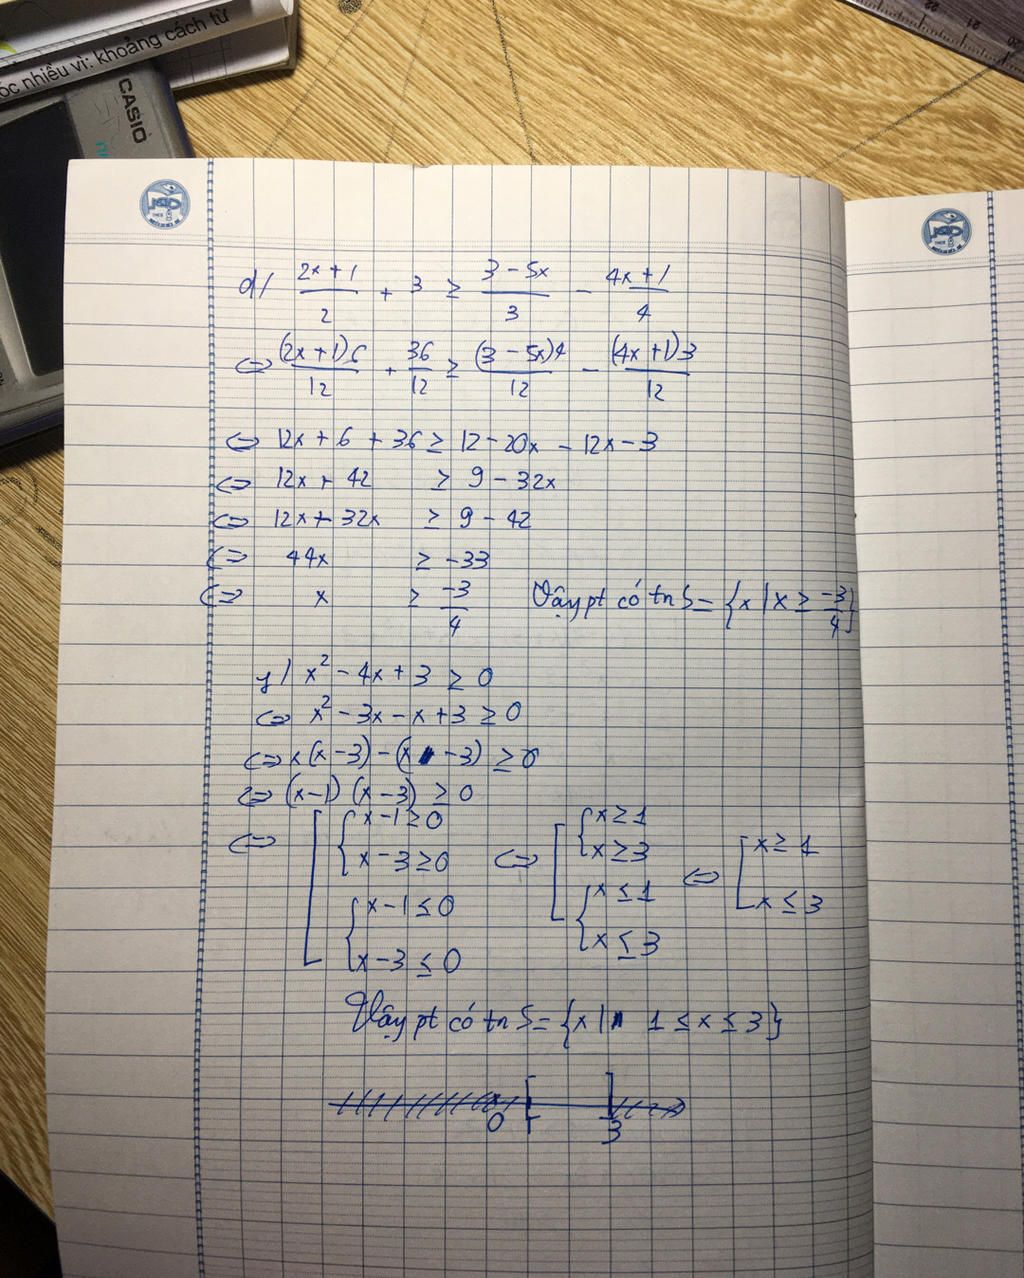 óc nhiều vì: khoảng cách từ
CASIO
d/ (2x+1)/2 + 3 ≥ (3-5x)/3 - (4x+1)/4
⇔ (2x+1)6/12 + 36/12 ≥ (3-5x)4/12 - (4x+1)3/12
⇔ 12x + 6 + 36 ≥ 12 - 20x - 12x - 3
⇔ 12x + 42 ≥ 9 - 32x
⇔ 12x + 32x ≥ 9 - 42
⇔ 44x ≥ -33
⇔ x ≥ -3/4 Vậy pt có tn S = {x | x ≥ -3/4}
y) x² - 4x + 3 ≥ 0
⇔ x² - 3x - x + 3 ≥ 0
⇔ x(x-3) - (x-3) ≥ 0
⇔ (x-1)(x-3) ≥ 0
⇔ [ { x-1 ≥ 0 ⇔ [ { x ≥ 1 ⇔ [ x ≥ 1
x-3 ≥ 0 x ≥ 3
{ x-1 ≤ 0 { x ≤ 1 x ≤ 3
x-3 ≤ 0 x ≤ 3
Vậy pt có tn S = {x | 1 ≤ x ≤ 3}
0 1 3